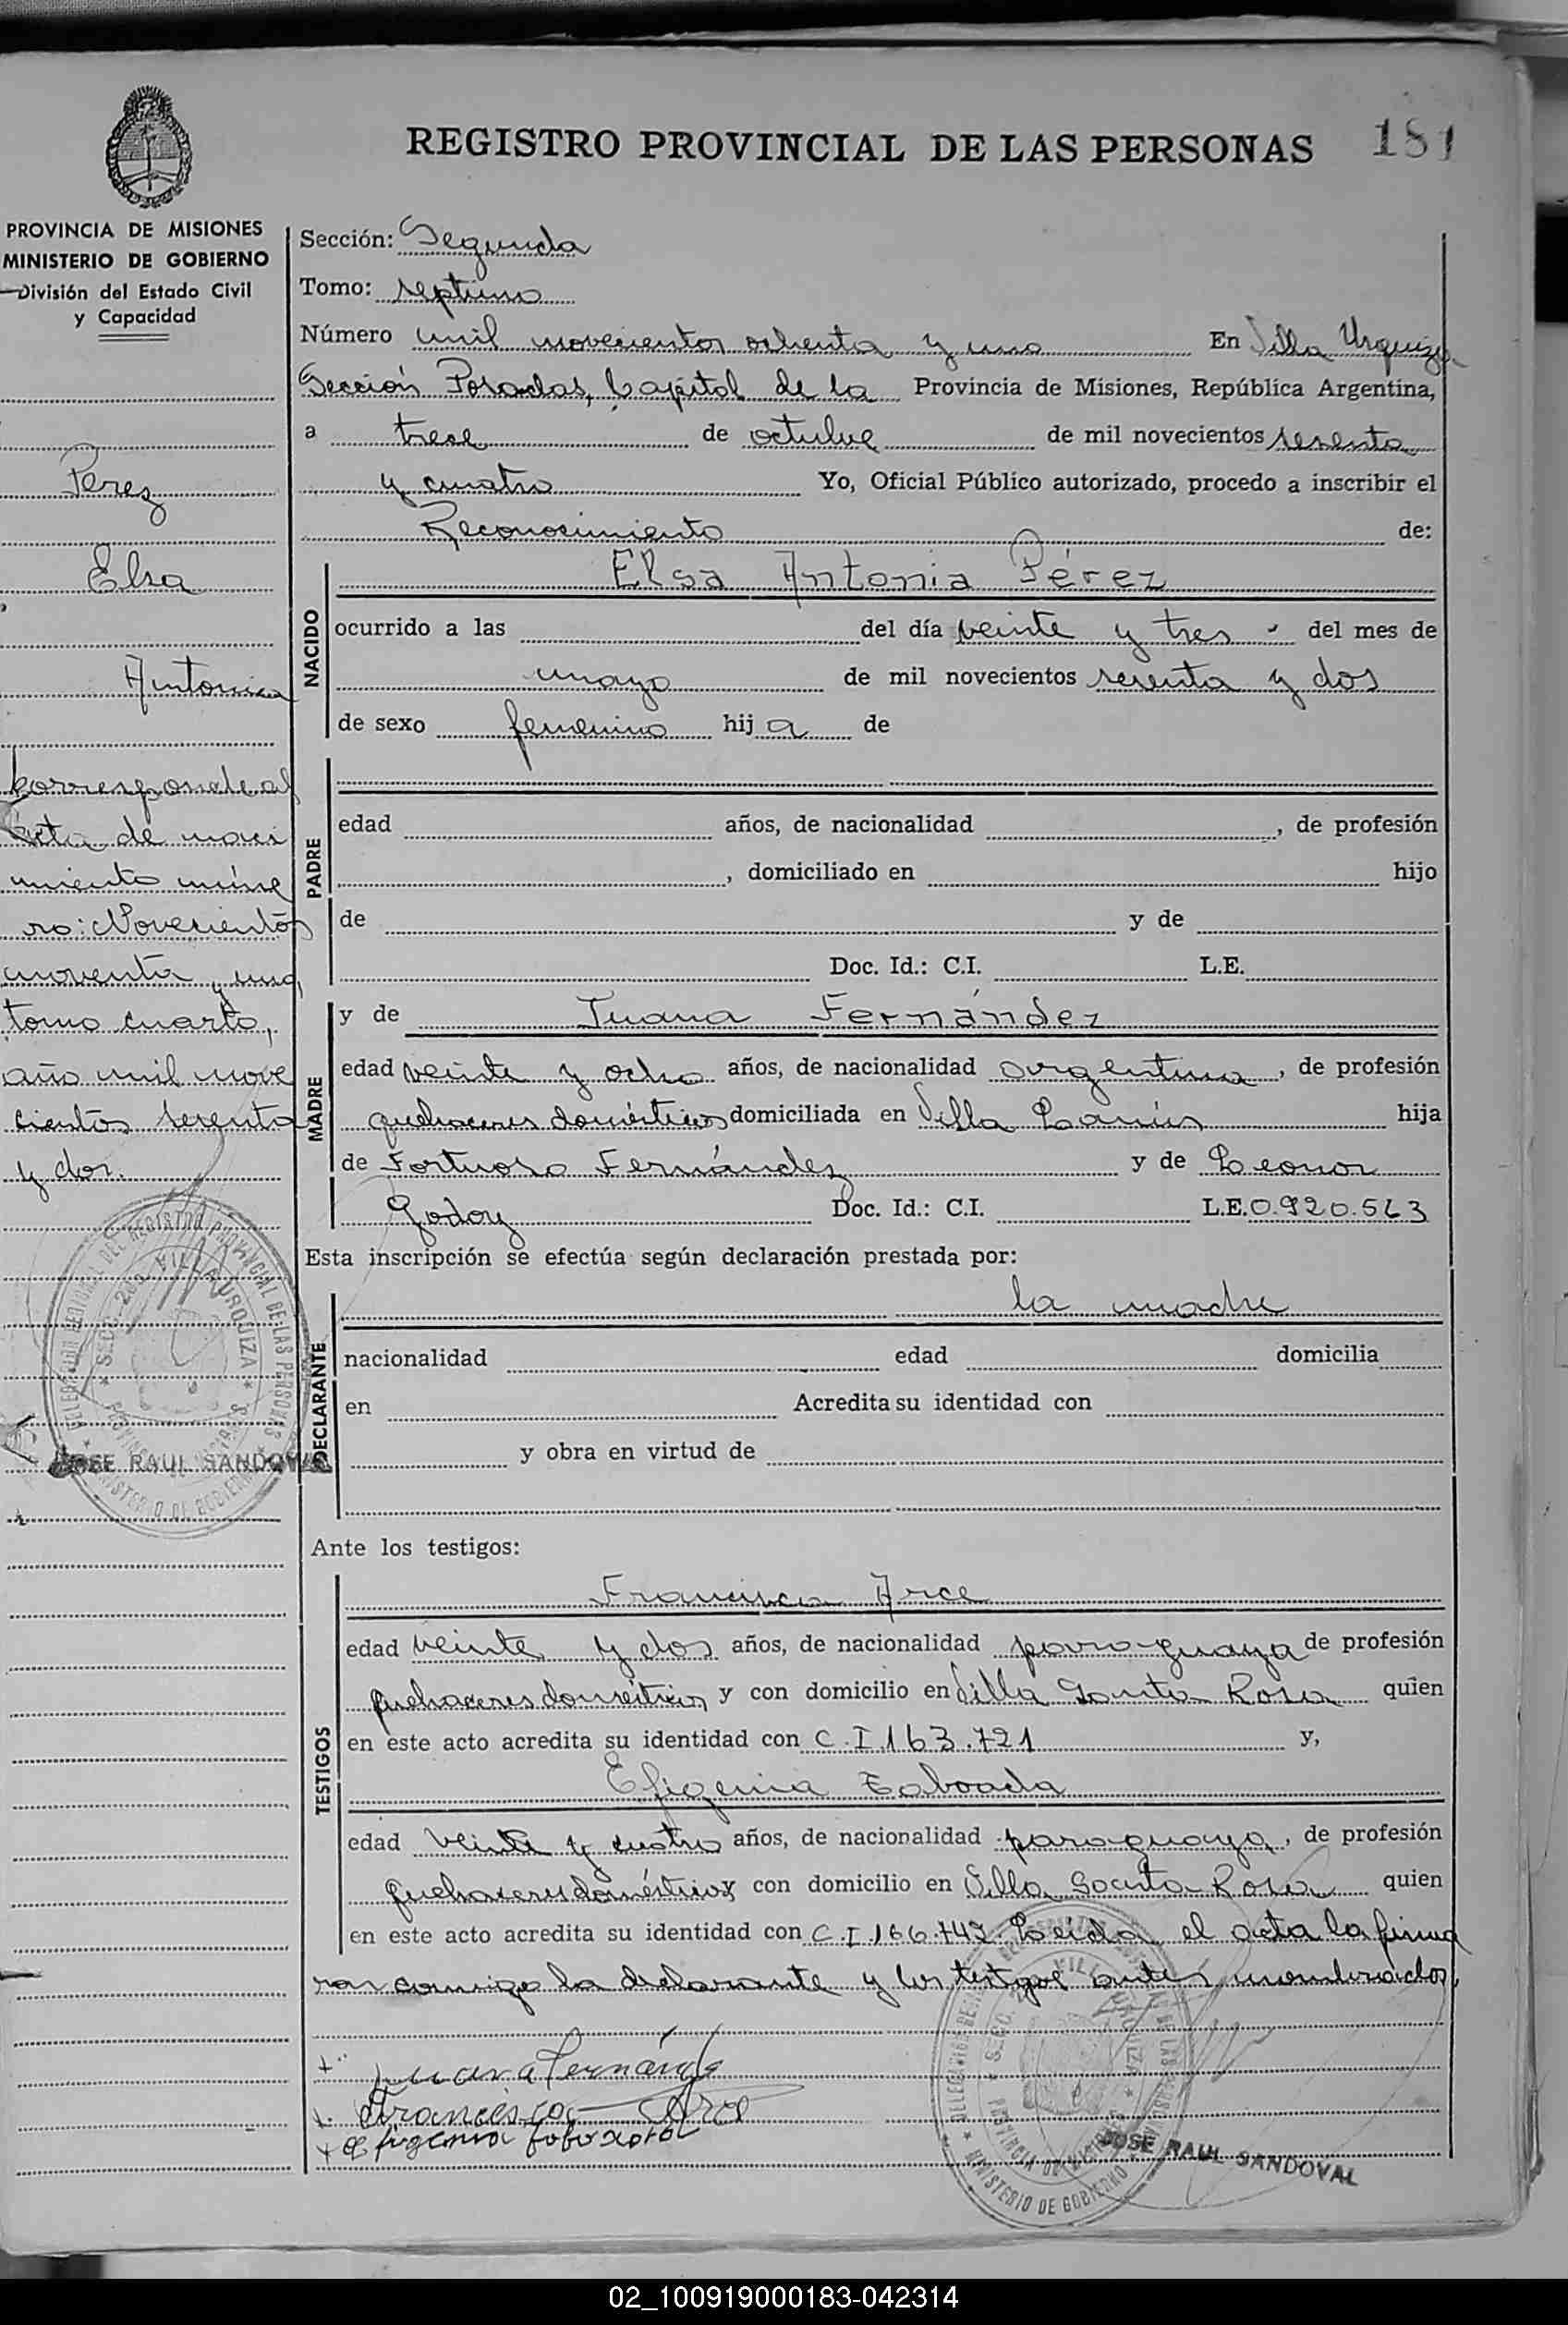 REGISTRO PROVINCIAL DE LAS PERSONAS 181
PROVINCIA DE MISIONES
MINISTERIO DE GOBIERNO
División del Estado Civil
y Capacidad
Perez
Elsa
Antonia
Corresponde al
acta de naci
miento núme
ro: Novecientos
noventa y uno,
tomo cuarto,
año mil nove
cientos sesenta
y dos.
JOSE RAUL SANDOVAL
Sección: Segunda
Tomo: septimo
Número mil novecientos ochenta y uno En Villa Urquiza
Sección Posadas, Capital de la Provincia de Misiones, República Argentina,
a trece de octubre de mil novecientos sesenta
y cuatro Yo, Oficial Público autorizado, procedo a inscribir el
Reconocimiento de:
NACIDO
Elsa Antonia Pérez
ocurrido a las del día veinte y tres - del mes de
mayo de mil novecientos sesenta y dos
de sexo femenino hija de
PADRE
edad años, de nacionalidad , de profesión
, domiciliado en hijo
de y de
Doc. Id.: C.I. L.E.
MADRE
y de Juana Fernández
edad veinte y ocho años, de nacionalidad argentina, de profesión
quehaceres domésticos domiciliada en Villa Lanús hija
de Fortuoso Fernández y de Leonor
Godoy Doc. Id.: C.I. L.E. 0.920.563
Esta inscripción se efectúa según declaración prestada por:
DECLARANTE
la madre
nacionalidad edad domicilia
en Acredita su identidad con
y obra en virtud de
Ante los testigos:
TESTIGOS
Francisca Arce
edad veinte y dos años, de nacionalidad paraguaya de profesión
quehaceres domésticos y con domicilio en Villa Santa Rosa quien
en este acto acredita su identidad con C.I 163.721 y,
Efigenia Taboada
edad veinte y cuatro años, de nacionalidad paraguaya, de profesión
quehaceres domésticos y con domicilio en Villa Santa Rosa quien
en este acto acredita su identidad con C.I 166.742. Leida el acta la firma
ron conmigo la declarante y los testigos antes nombrados,
Juana Fernández
Francisca Arce
Efigenia
JOSE RAUL SANDOVAL
02_100919000183-042314